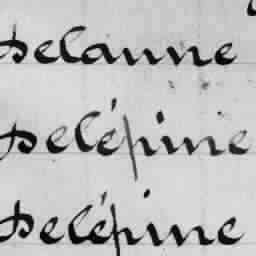 Delanne
Delépine
Delépine